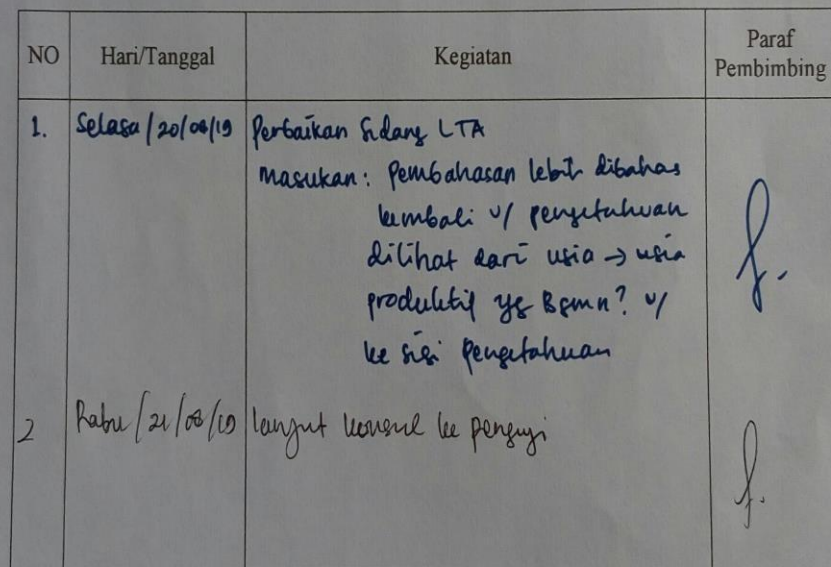 NO Hari/Tanggal Kegiatan Paraf
Pembimbing
1. Selasa/20/08/19 Perbaikan Sidang LTA
Masukan: Pembahasan lebih dibahas
kembali u/ pengetahuan
dilihat dari usia → usia
produktif yg Bgmn? u/
ke sisi pengetahuan
2 Rabu/21/08/19 lanjut konsul ke penguji